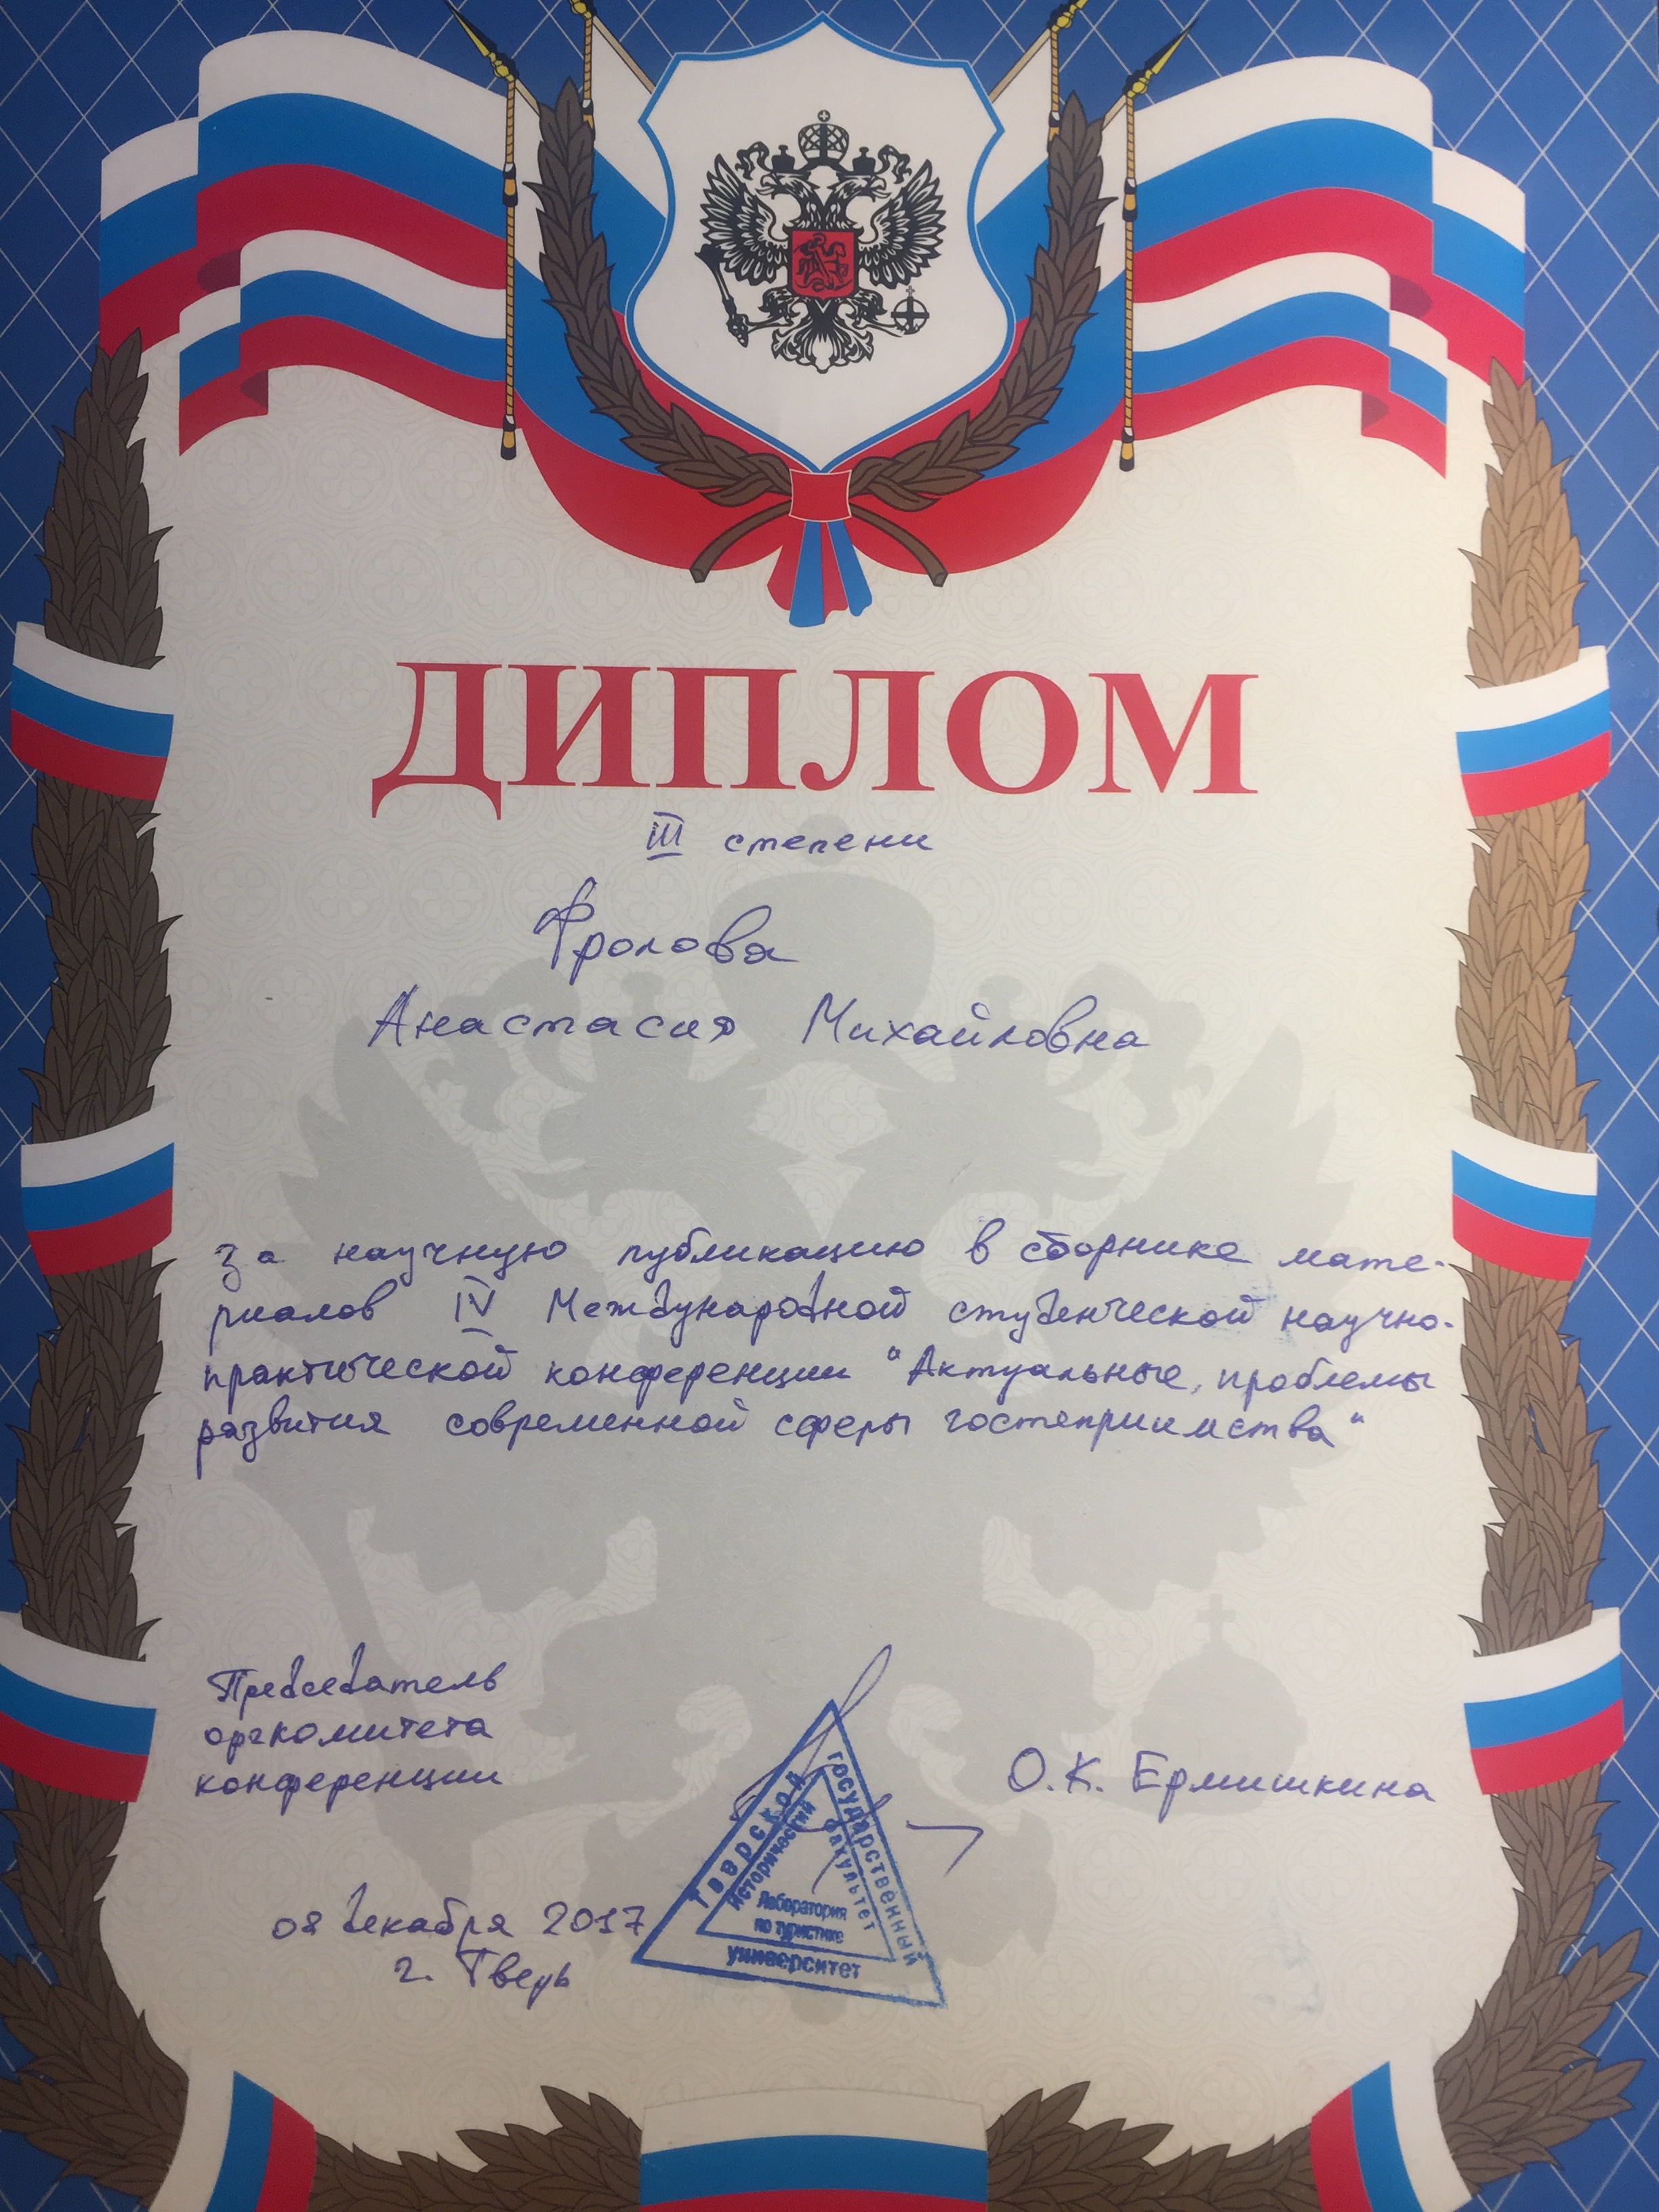 ДИПЛОМ
III степени
Фролова
Анастасия Михайловна
за научную публикацию в сборнике мате-
риалов IV Международной студенческой научно-
практической конференции "Актуальные проблемы
развития современной сферы гостеприимства"
Председатель
оргкомитета
конференции
О.К. Ермишкина
Тверской
государственный
университет
Исторический
факультет
Лаборатория
по туристике
08 декабря 2017
г. Тверь